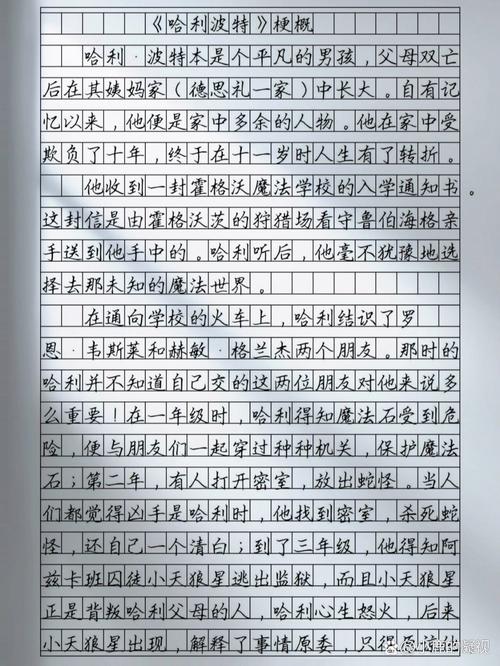 《哈利波特》梗概
哈利·波特本是个平凡的男孩，父母双亡
后在其姨妈家（德思礼一家）中长大。自有记
忆以来，他便是家中多余的人物。他在家中受
欺负了十年，终于在十一岁时人生有了转折。
他收到一封霍格沃魔法学校的入学通知书。
这封信是由霍格沃茨的狩猎场看守鲁伯海格亲
手送到他手中的。哈利听后，他毫不犹豫地选
择去那未知的魔法世界。
在通向学校的火车上，哈利结识了罗
恩·韦斯莱和赫敏·格兰杰两个朋友。那时的
哈利并不知道自己交的这两位朋友对他来说多
么重要！在一年级时，哈利得知魔法石受到危
险，便与朋友们一起穿过种种机关，保护魔法
石；第二年，有人打开密室，放出蛇怪。当人
们都觉得凶手是哈利时，他找到密室，杀死蛇
怪，还自己一个清白；到了三年级，他得知阿
兹卡班囚徒小天狼星逃出监狱，而且小天狼星
正是背叛哈利父母的人，哈利心生怒火，后来
小天狼星出现，解释了事情原委，只得